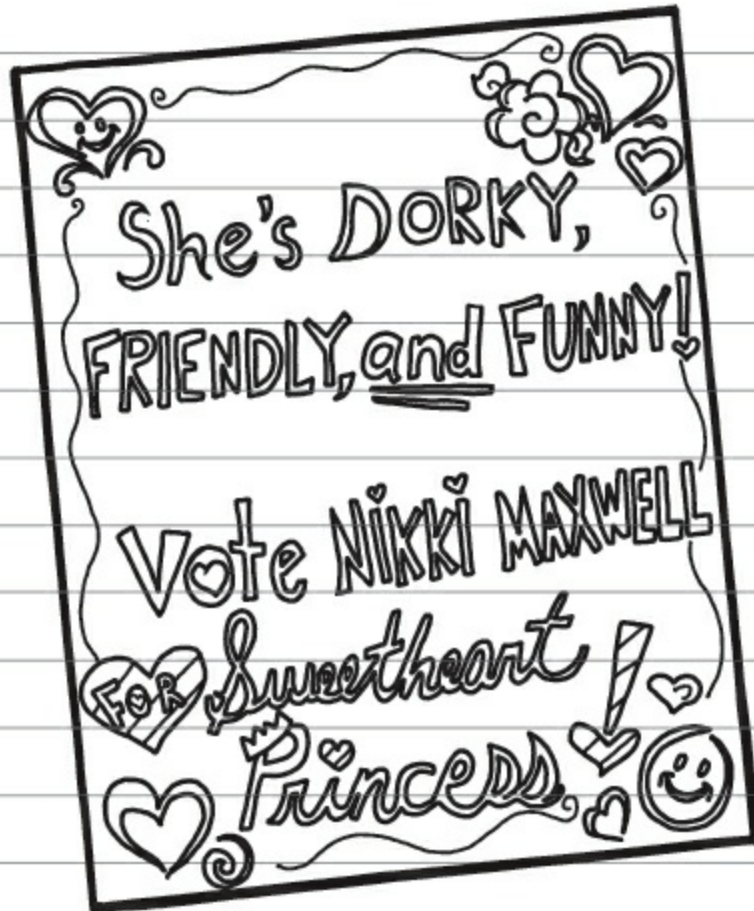 She's DORKY,
FRIENDLY, and FUNNY!
Vote NiKKi MAXWELL
FOR Sweetheart
Princess!